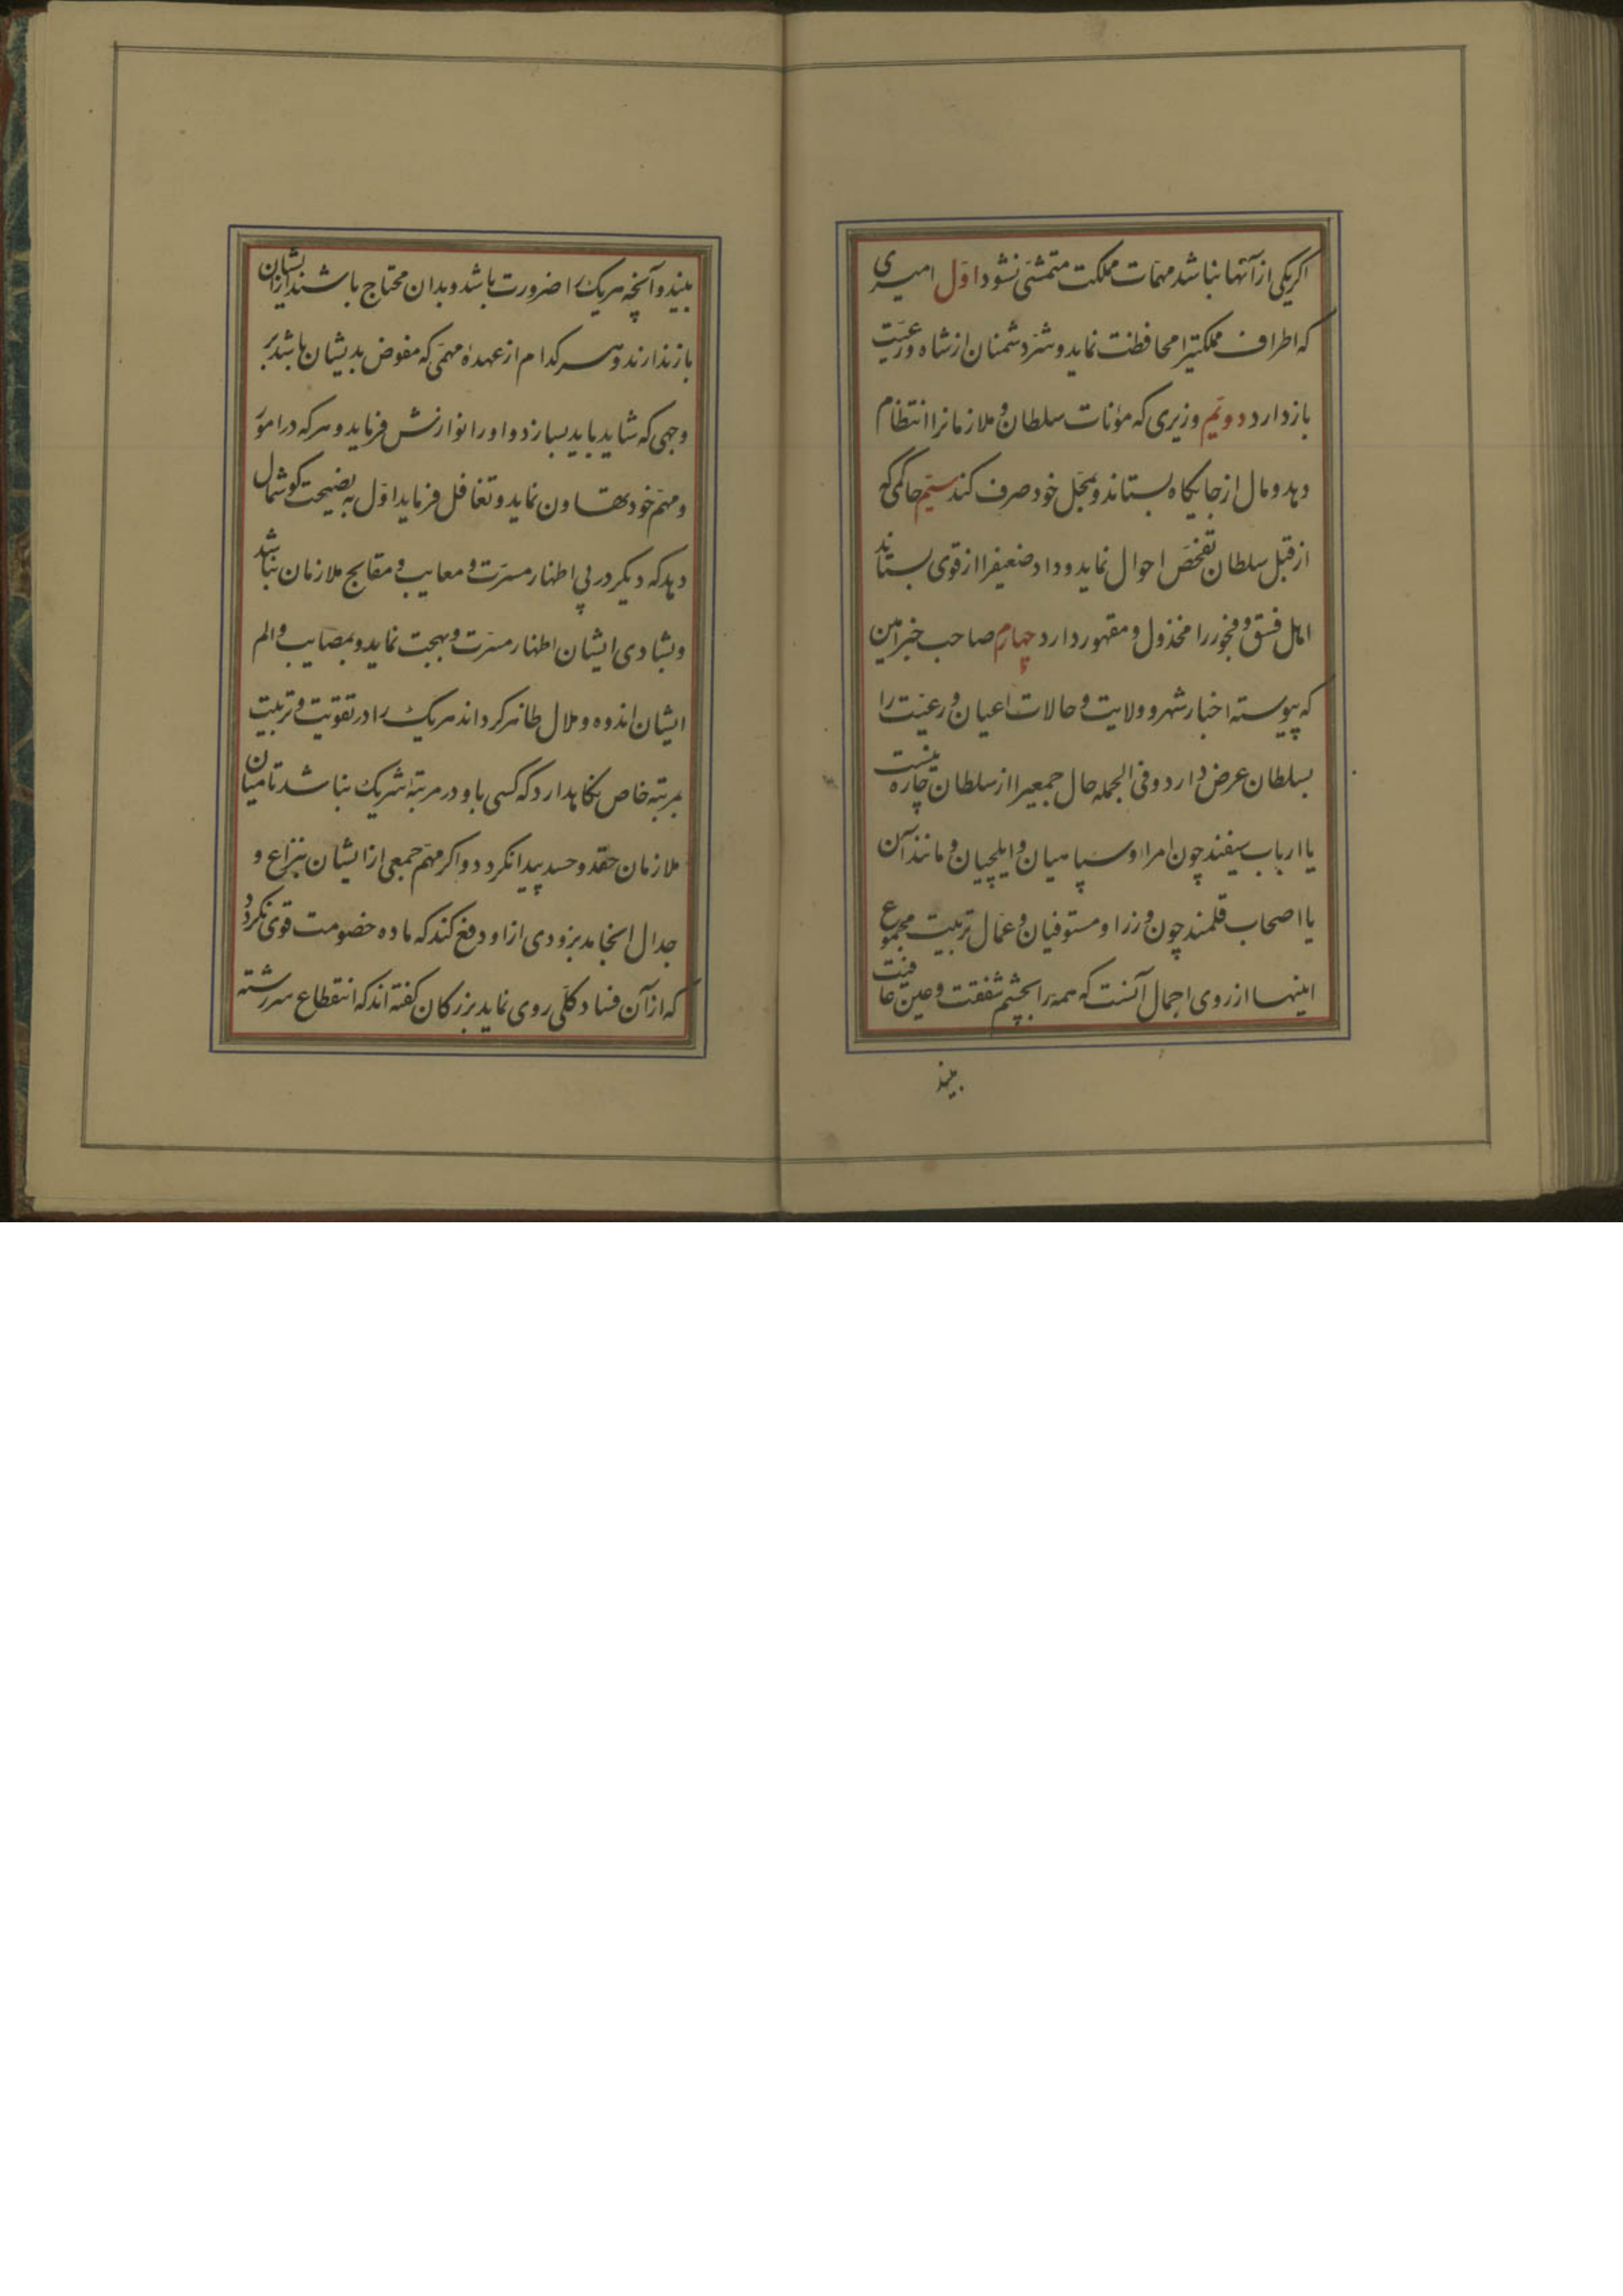 اکر یکی از آنها نباشد مهمّات مملکت متمشّی نشود اوّل امیری
که اطراف مملکتیرا محافظت نماید و شرّ دشمنان از شاه و رعیّت
باز دارد دویّم وزیری که مؤنات سلطان و ملازمانرا انتظام
دهد و مال از جایکاه بستاند و بمحلّ خود صرف کند سیّم حاکمی که
از قبل سلطان تفحّص احوال نماید و داد ضعیفرا از قوی بستاند
اهل فسق و فجور را مخذول و مقهور دارد چهارم صاحب خبر امین
که پیوسته اخبار شهر و ولایت و حالات اعیان و رعیّت را
بسلطان عرض دارد و فی الجمله حال جمعیرا از سلطان چاره نیست
یا ارباب سیفند چون امرا و سپاهیان و ایلچیان و مانند آن
یا اصحاب قلمند چون وزرا و مستوفیان و عمّال تربیت مجموع
اینها از روی اجمال آنست که همه را بچشم شفقت و عین عاقبت
بیند
بیند و آنچه هریک را ضرورت باشد و بدان محتاج باشند از ایشان
باز ندارند و هر کدام از عهدهٔ مهمّی که مفوض بدیشان باشد بر
وجهی که شاید باید بسپارد و او را نوازش فرماید و هرکه در امور
و مهمّ خود تهاون نماید و تغافل فرماید اوّل به نصیحت کوشمال
دهد که دیکر در پی اظهار مسرّت و معایب و مقابح ملازمان نباشد
و بشادی ایشان اظهار مسرّت و بهجت نماید و بمصایب و الم
ایشان اندوه و ملال ظاهر کرداند هریک را در تقویت و تربیت
بمرتبهٔ خاص نکاهدارد که کسی با و در مرتبهٔ شریک نباشد تا میان
ملازمان حقد و حسد پیدا نکردد و اکر مهمّ جمعی از ایشان بنزاع و
جدال انجامد بزودی از او دفع کند که ماده خصومت قوی نکردد
که از آن فساد کلّی روی نماید بزرکان کفته اند که انقطاع سر رشته